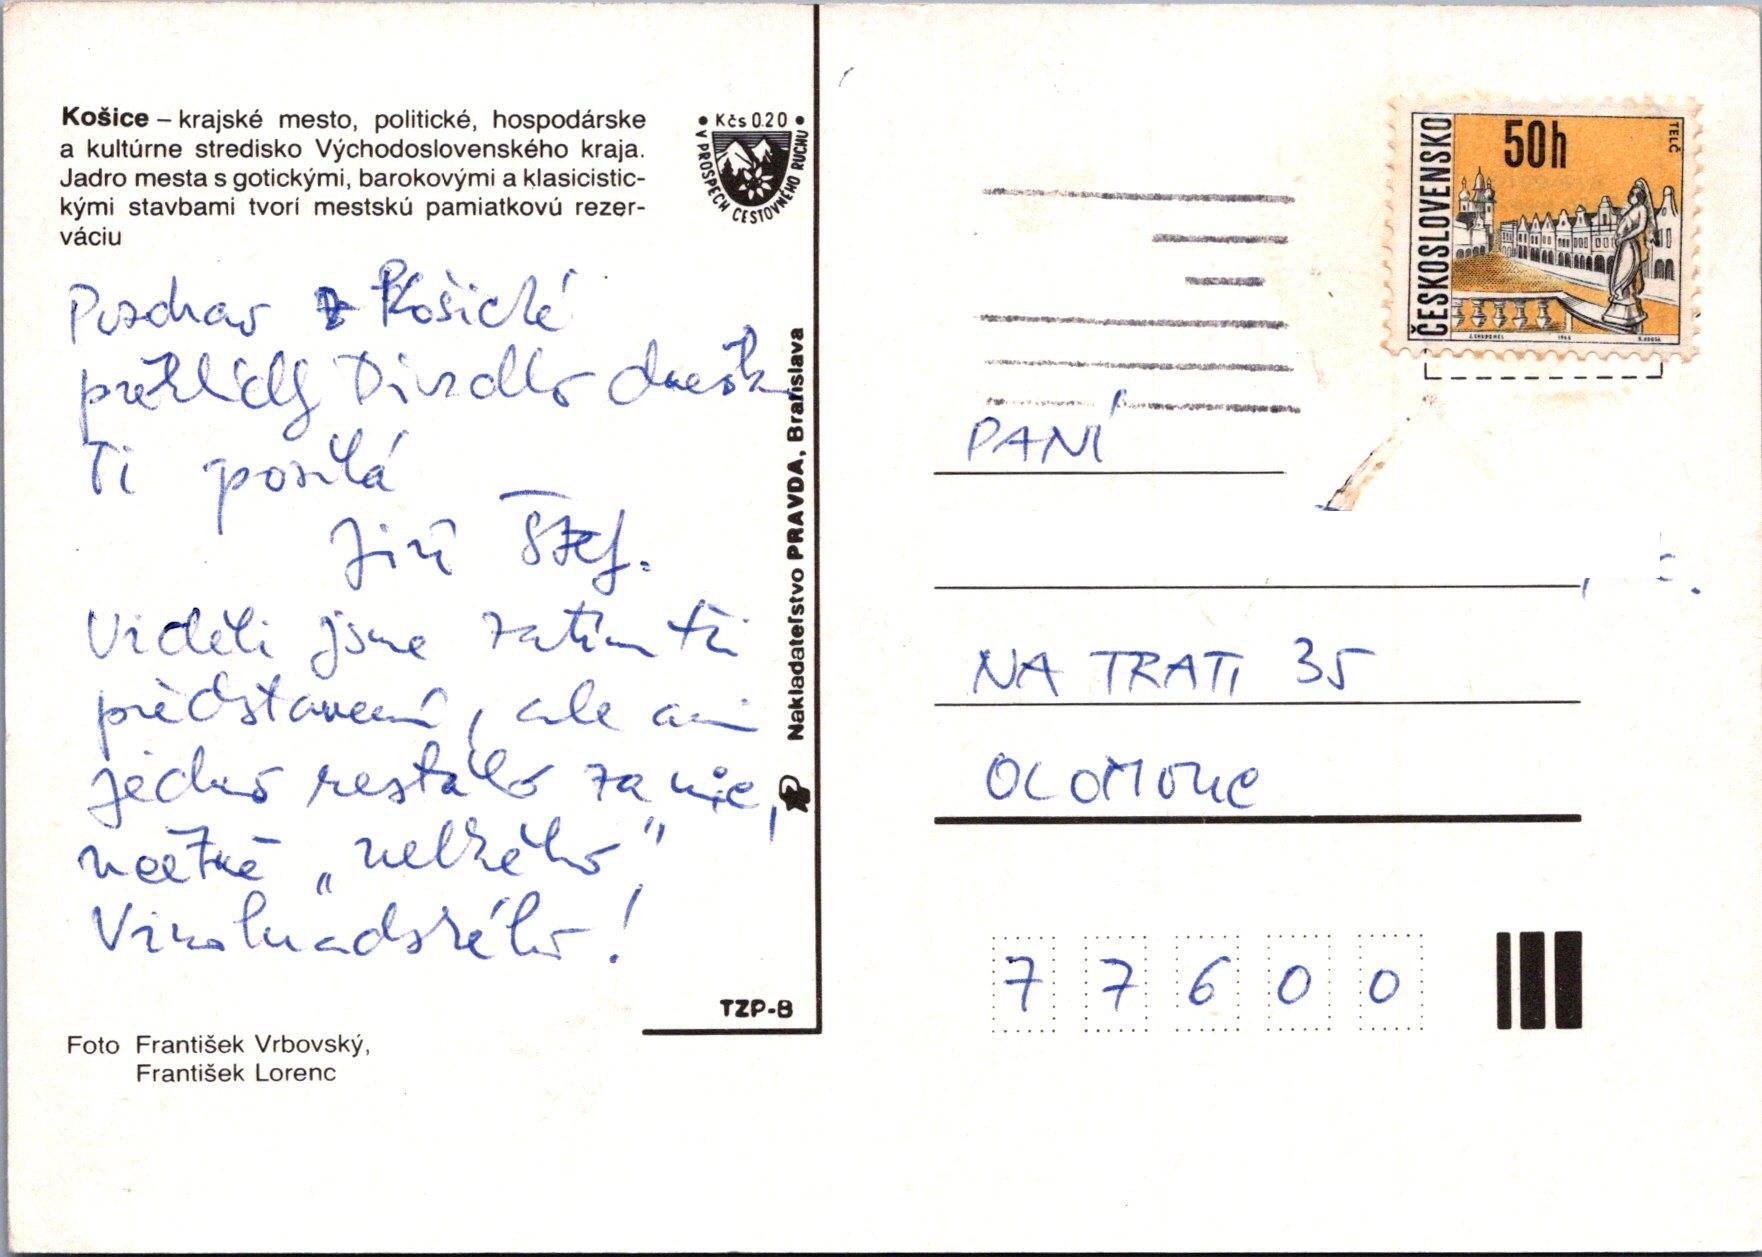 Košice – krajské mesto, politické, hospodárske
a kultúrne stredisko Východoslovenského kraja.
Jadro mesta s gotickými, barokovými a klasicistic-
kými stavbami tvorí mestskú pamiatkovú rezer-
váciu
• Kčs 0.20 •
V PROSPECH CESTOVNÉHO RUCHU
Pozdrav z Košické
přehlídky Divadlo dneška
Ti posílá
Jiří Štef.
Viděli jsme zatím tři
představení, ale ani
jedno nestálo za nic,
včetně „velkého"
Vinohradského!
Nakladateľstvo PRAVDA, Bratislava
TZP-8
Foto František Vrbovský,
František Lorenc
ČESKOSLOVENSKO
50h
TELČ
PANÍ
NA TRATI 35
OLOMOUC
77600